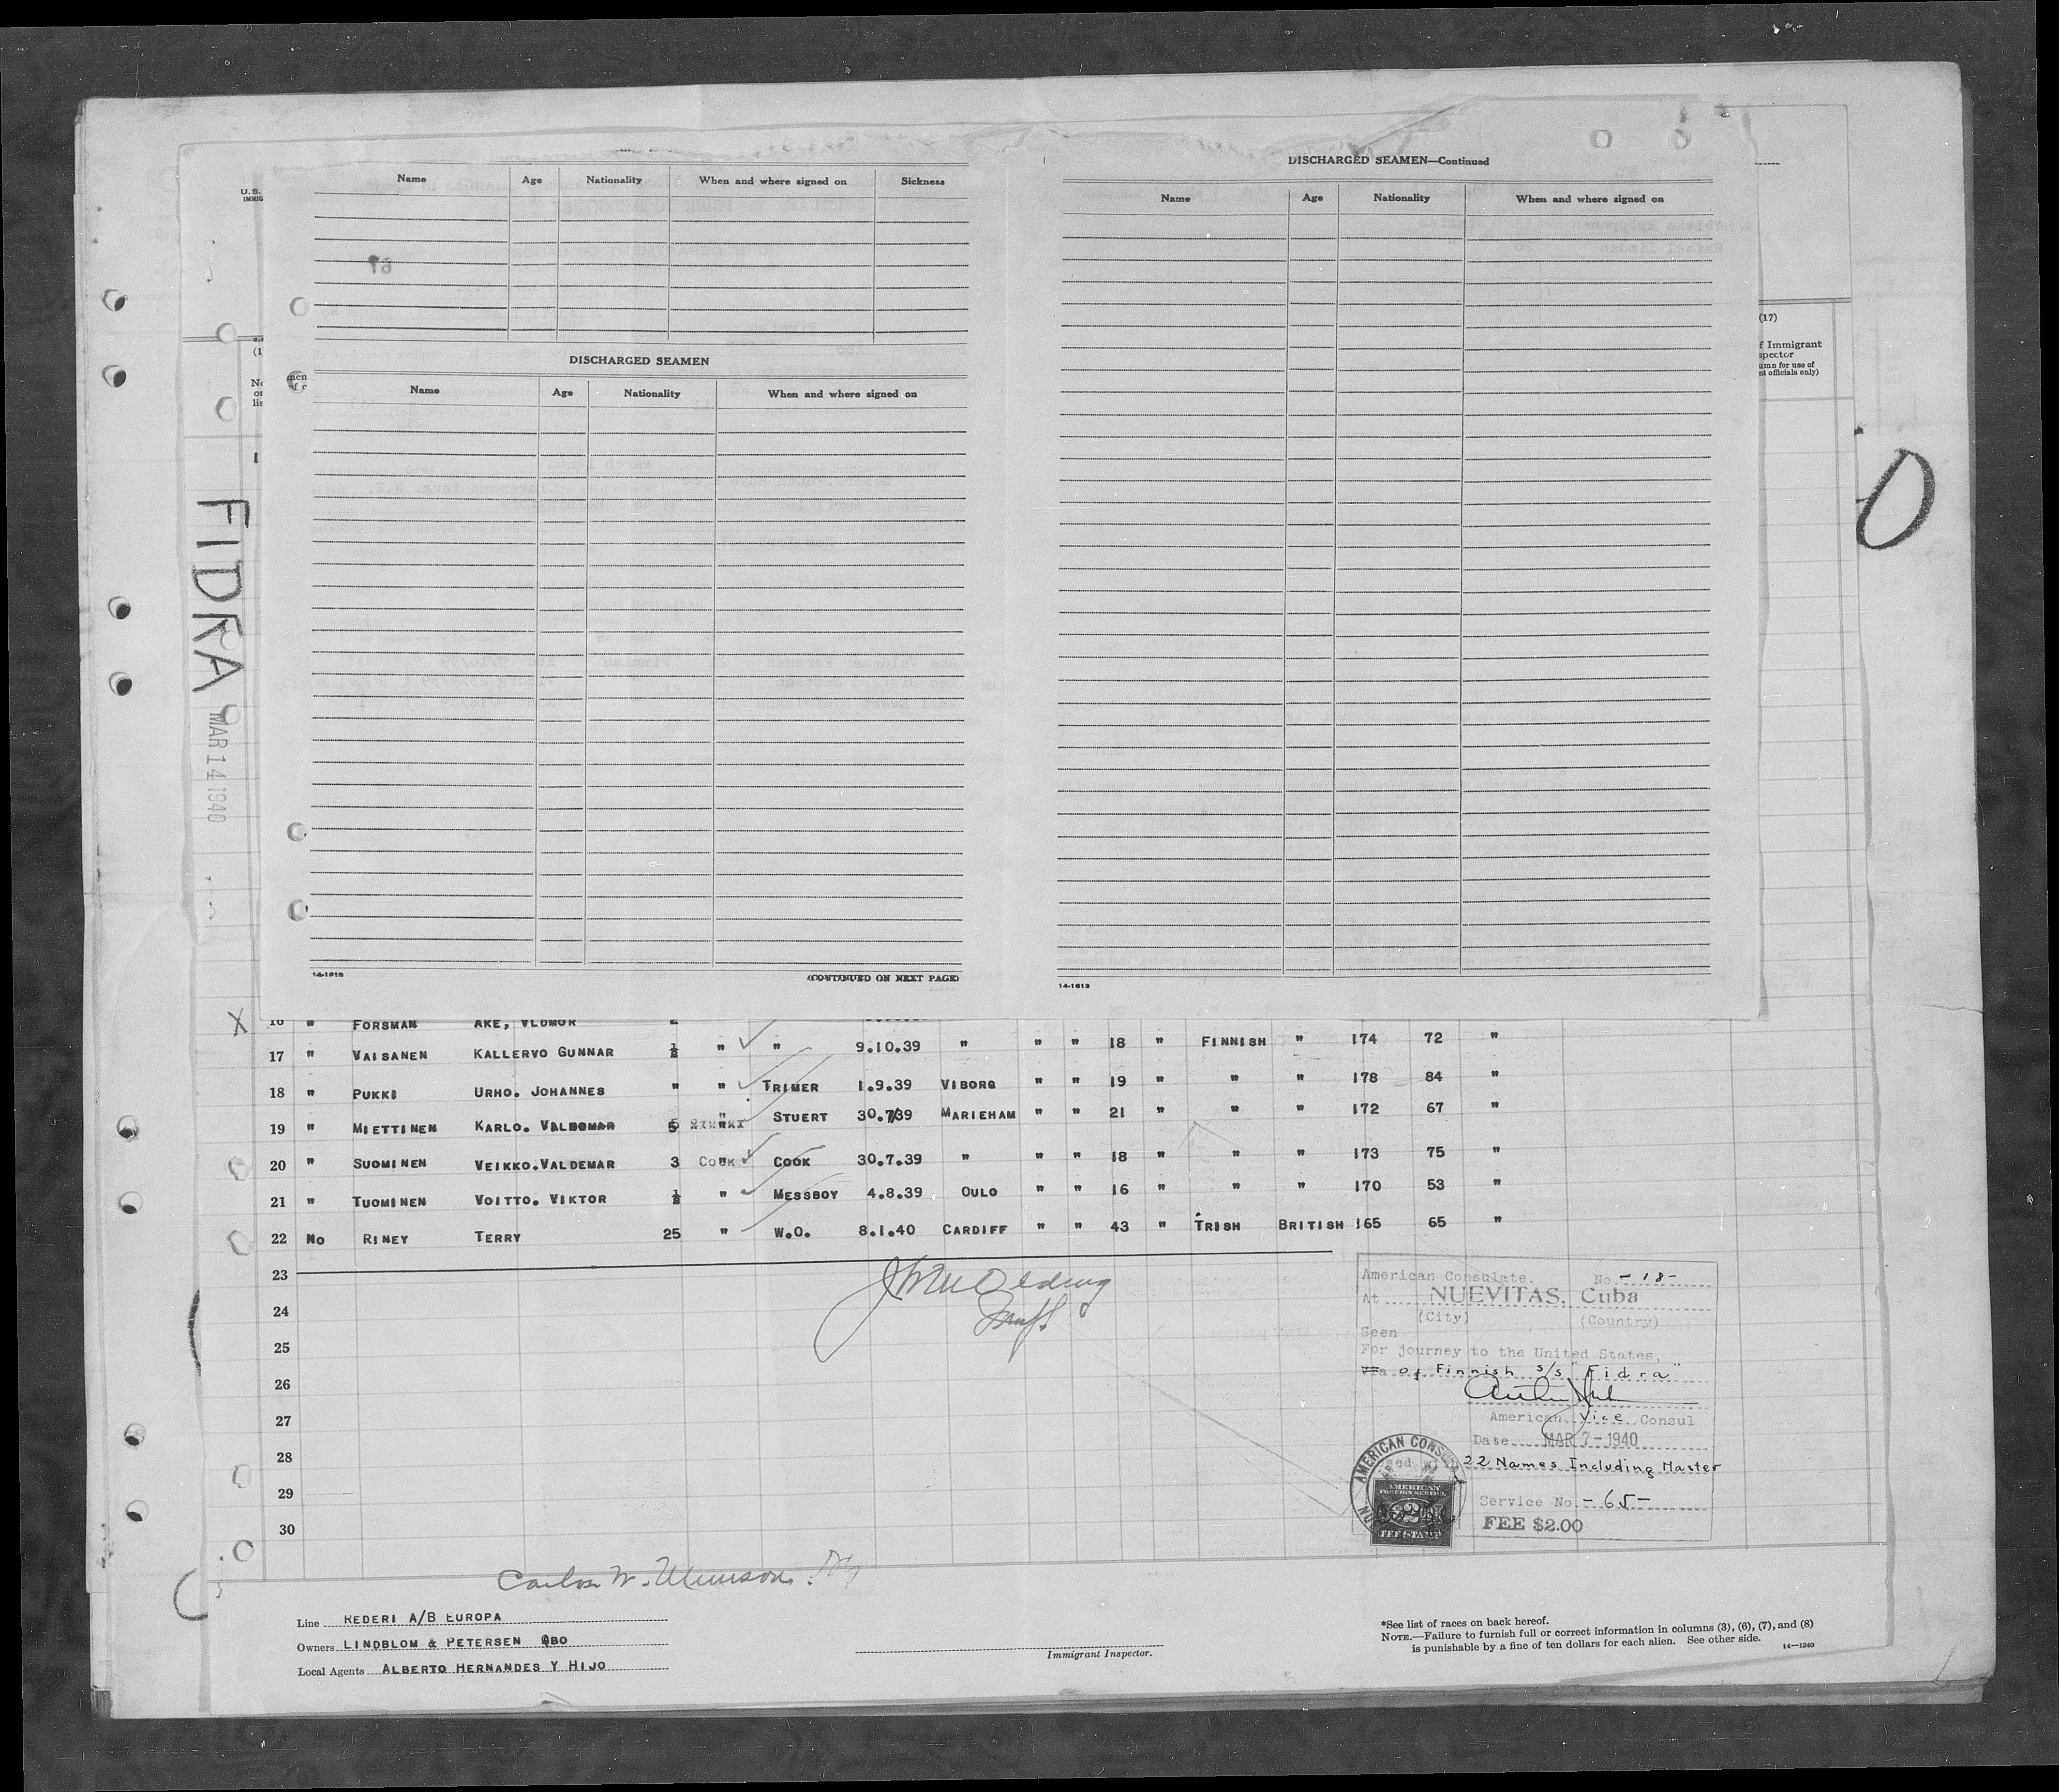 U. S.
IMMIG
Name Age Nationality When and where signed on Sickness
DISCHARGED SEAMEN
Name Age Nationality When and where signed on
14-1613
(CONTINUED ON NEXT PAGE)
DISCHARGED SEAMEN—Continued
Name Age Nationality When and where signed on
14-1613
(17)
f Immigrant
spector
umn for use of
nt officials only)
O
FIDRA
MAR 14 1940
X 16 " FORSMAN AKE, VLDMOR
17 " VAISANEN KALLERVO GUNNAR ½ " " 9.10.39 " " " 18 " FINNISH " 174 72 "
18 " PUKKI URHO. JOHANNES " " TRIMER 1.9.39 VIBORG " " 19 " " " 178 84 "
19 " MIETTINEN KARLO. VALDOMAR 5 " STUERT 30.7/39 MARIEHAM " " 21 " " " 172 67 "
20 " SUOMINEN VEIKKO.VALDEMAR 3 COOK COOK 30.7.39 " " " 18 " " " 173 75 "
21 " TUOMINEN VOITTO. VIKTOR ½ " MESSBOY 4.8.39 OULO " " 16 " " " 170 53 "
22 NO RINEY TERRY 25 " W.O. 8.1.40 CARDIFF " " 43 " TRISH BRITISH 165 65 "
23
24
25
26
27
28
29
30
American Consulate. No. -18-
At NUEVITAS, Cuba
(City) (Country)
Seen
For journey to the United States,
Via of Finnish s/s "Fidra"
American Vice Consul
Date MAR 7-1940
22 Names Including Master
Service No. -65-
FEE $2.00
AMERICAN CONSU
AMERICAN
FOREIGN SERVICE
FEE STAMP
Carlos W. Munson.
Line REDERI A/B EUROPA
Owners LINDBLOM & PETERSEN ABO
Local Agents ALBERTO HERNANDES Y HIJO
Immigrant Inspector.
*See list of races on back hereof.
NOTE.—Failure to furnish full or correct information in columns (3), (6), (7), and (8)
is punishable by a fine of ten dollars for each alien. See other side. 14—1240